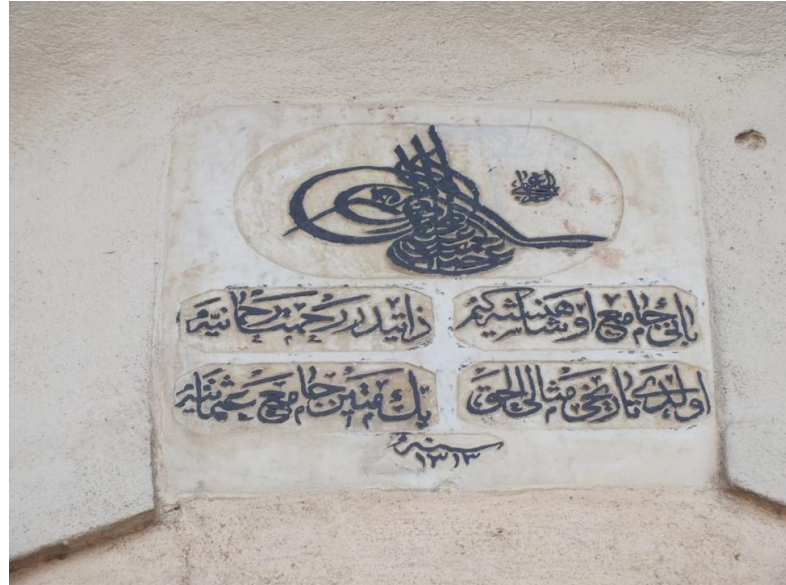 الغازی
بانئ جامع او شاهنشه كيم
ذاتيدر رحمت رحمانيه
اولدى تاريخى مثالى الحق
پك متين جامع عثمانيه
سنه
١٣١٣